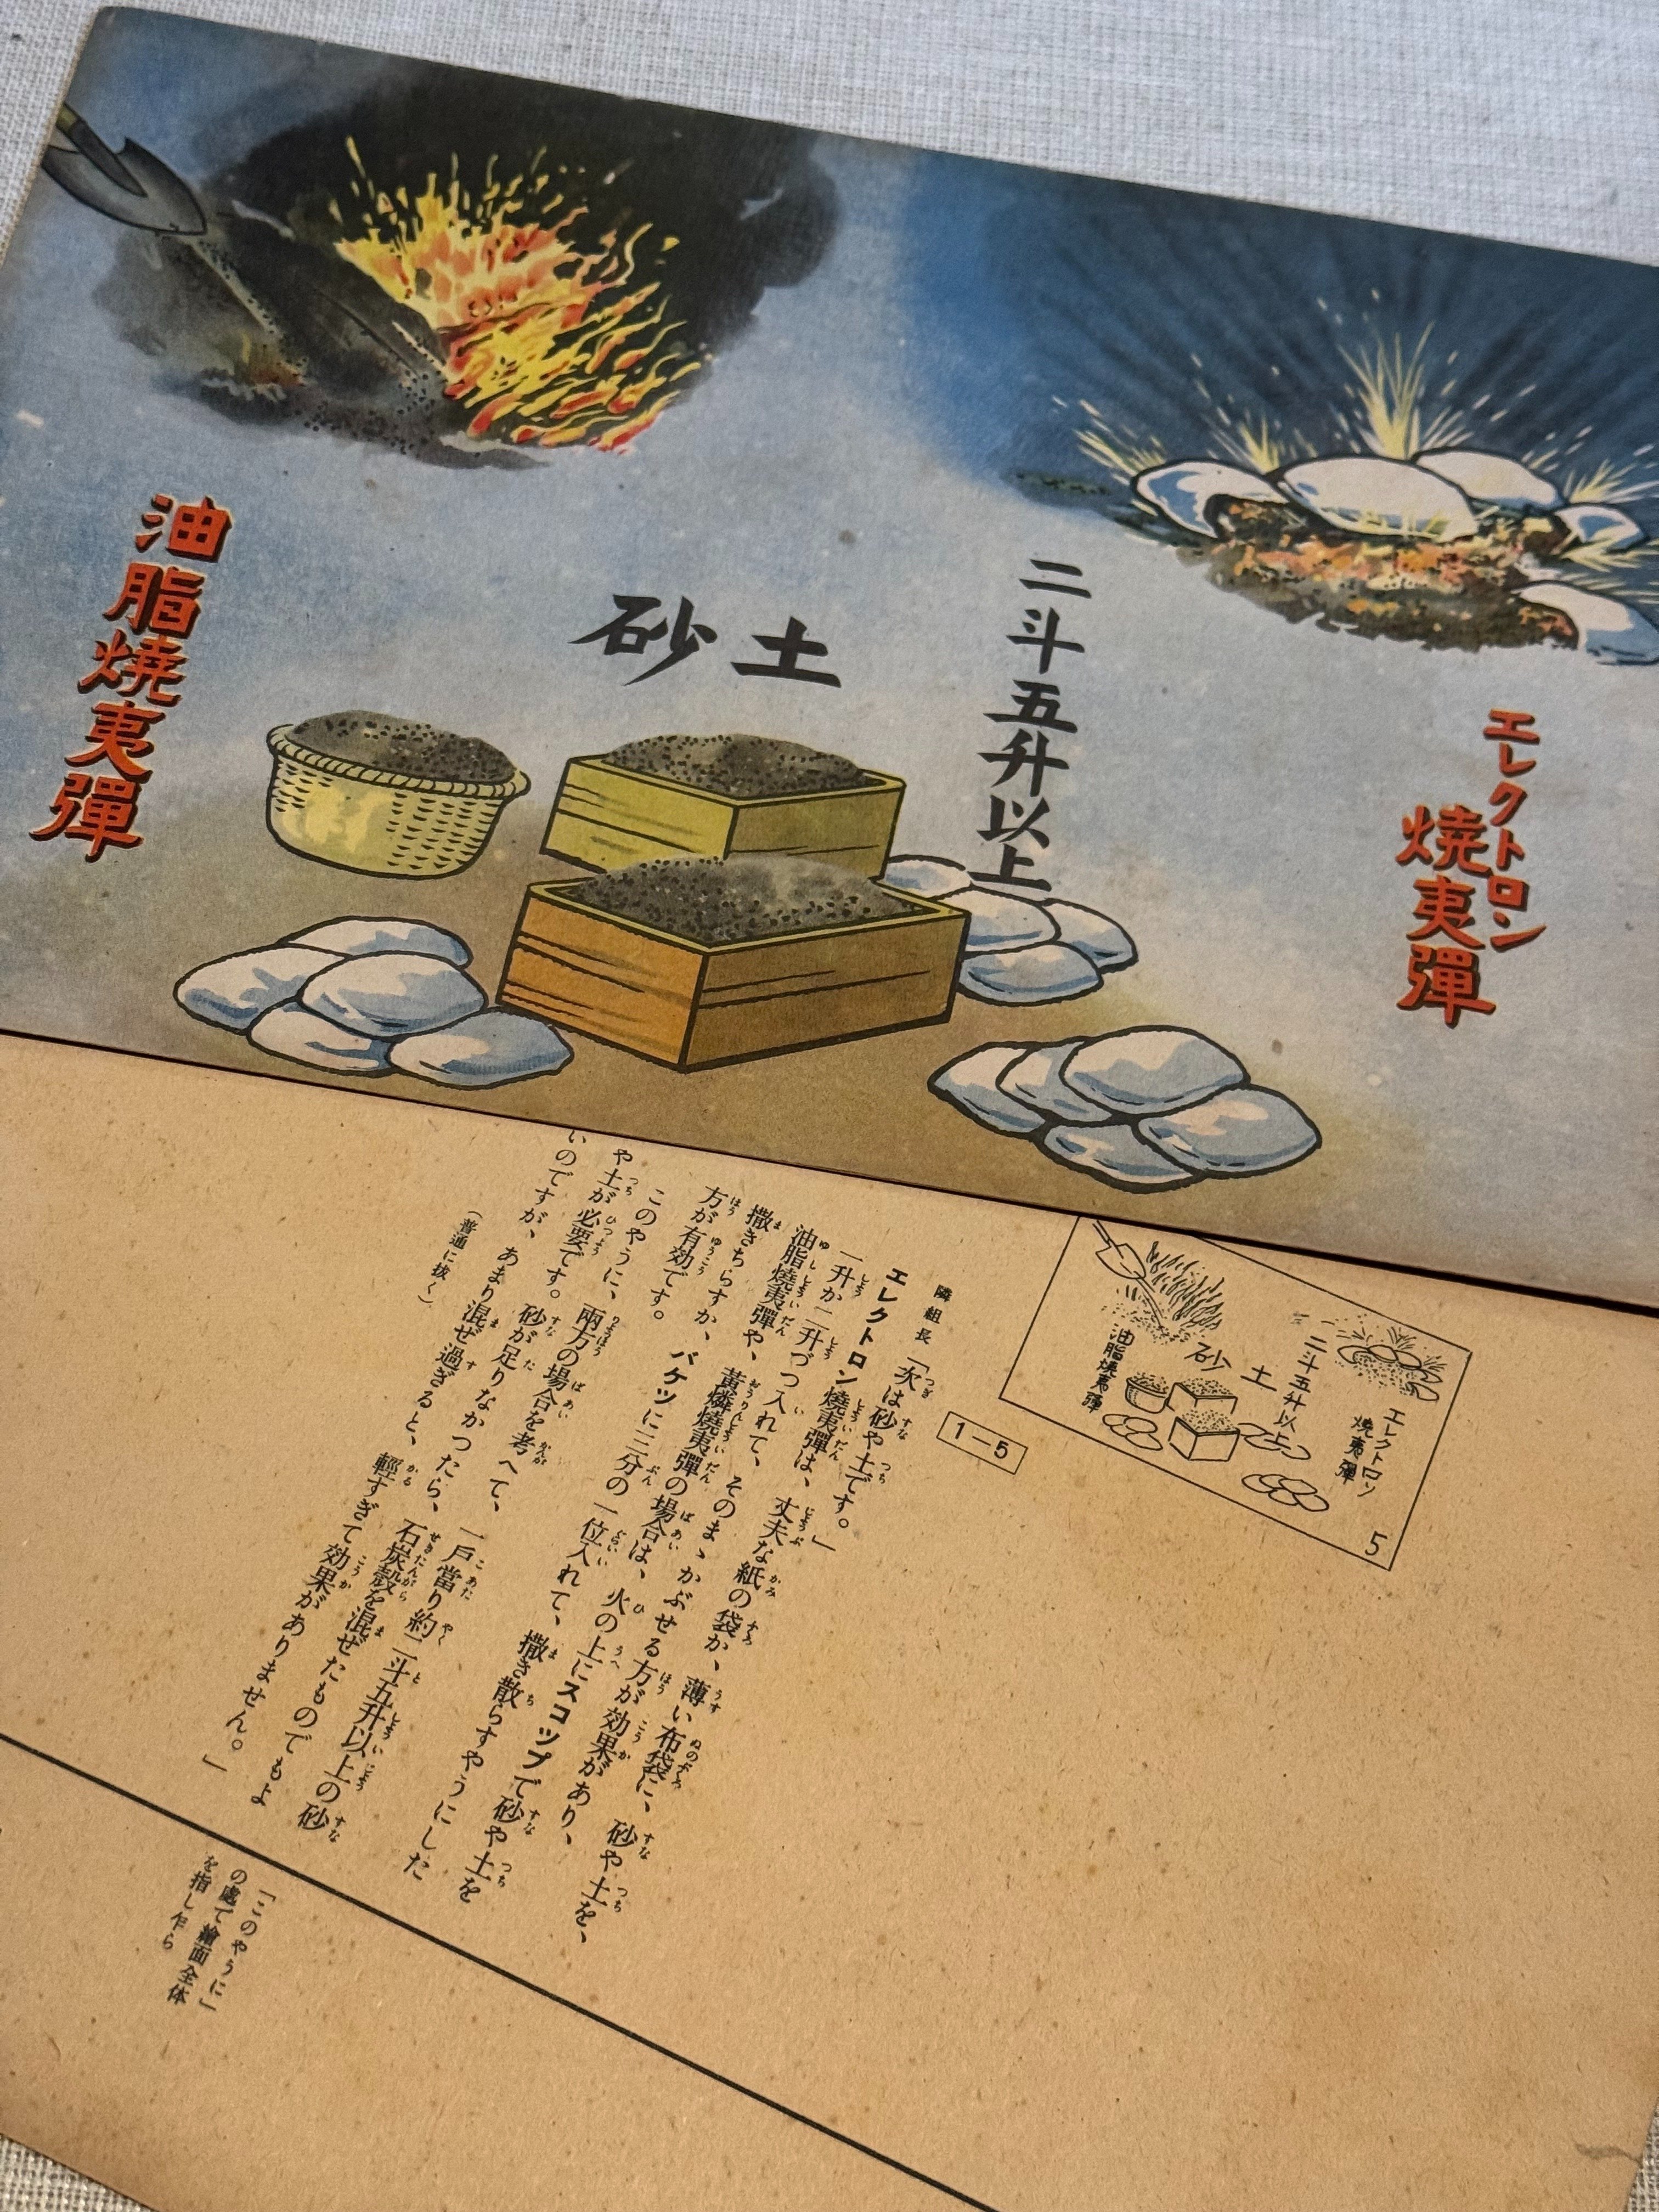 エレクトロン
燒夷彈
二斗五升以上
砂土
油脂燒夷彈
エレクトロン
燒夷彈
二斗五升以上
砂土
油脂燒夷彈
5
1—5
隣組長「次は砂や土です。」
エレクトロン燒夷彈は、丈夫な紙の袋か、薄い布袋に、砂や土を、
一升か二升づつ入れて、そのまゝかぶせる方が効果があり、
油脂燒夷彈や、黃燐燒夷彈の場合は、火の上にスコップで砂や土を
撒きちらすか、バケツに三分の一位入れて、撒き散らすやうにした
方が有効です。
このやうに、兩方の場合を考へて、一戶當り約二斗五升以上の砂
や土が必要です。砂が足りなかつたら、石炭殼を混ぜたものでもよ
いのですが、あまり混ぜ過ぎると、輕すぎて効果がありません。」
（普通に拔く）
「このやうに」
の處で繪面全体
を指し乍ら